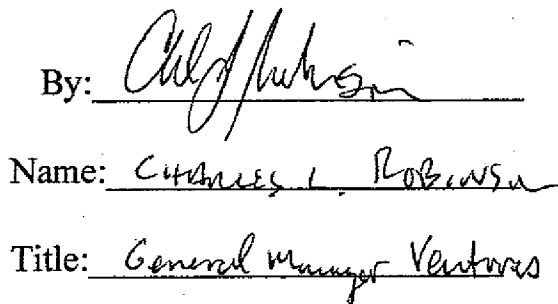 By:
Name: CHARLES L. ROBINSON
Title: General Manager Ventures